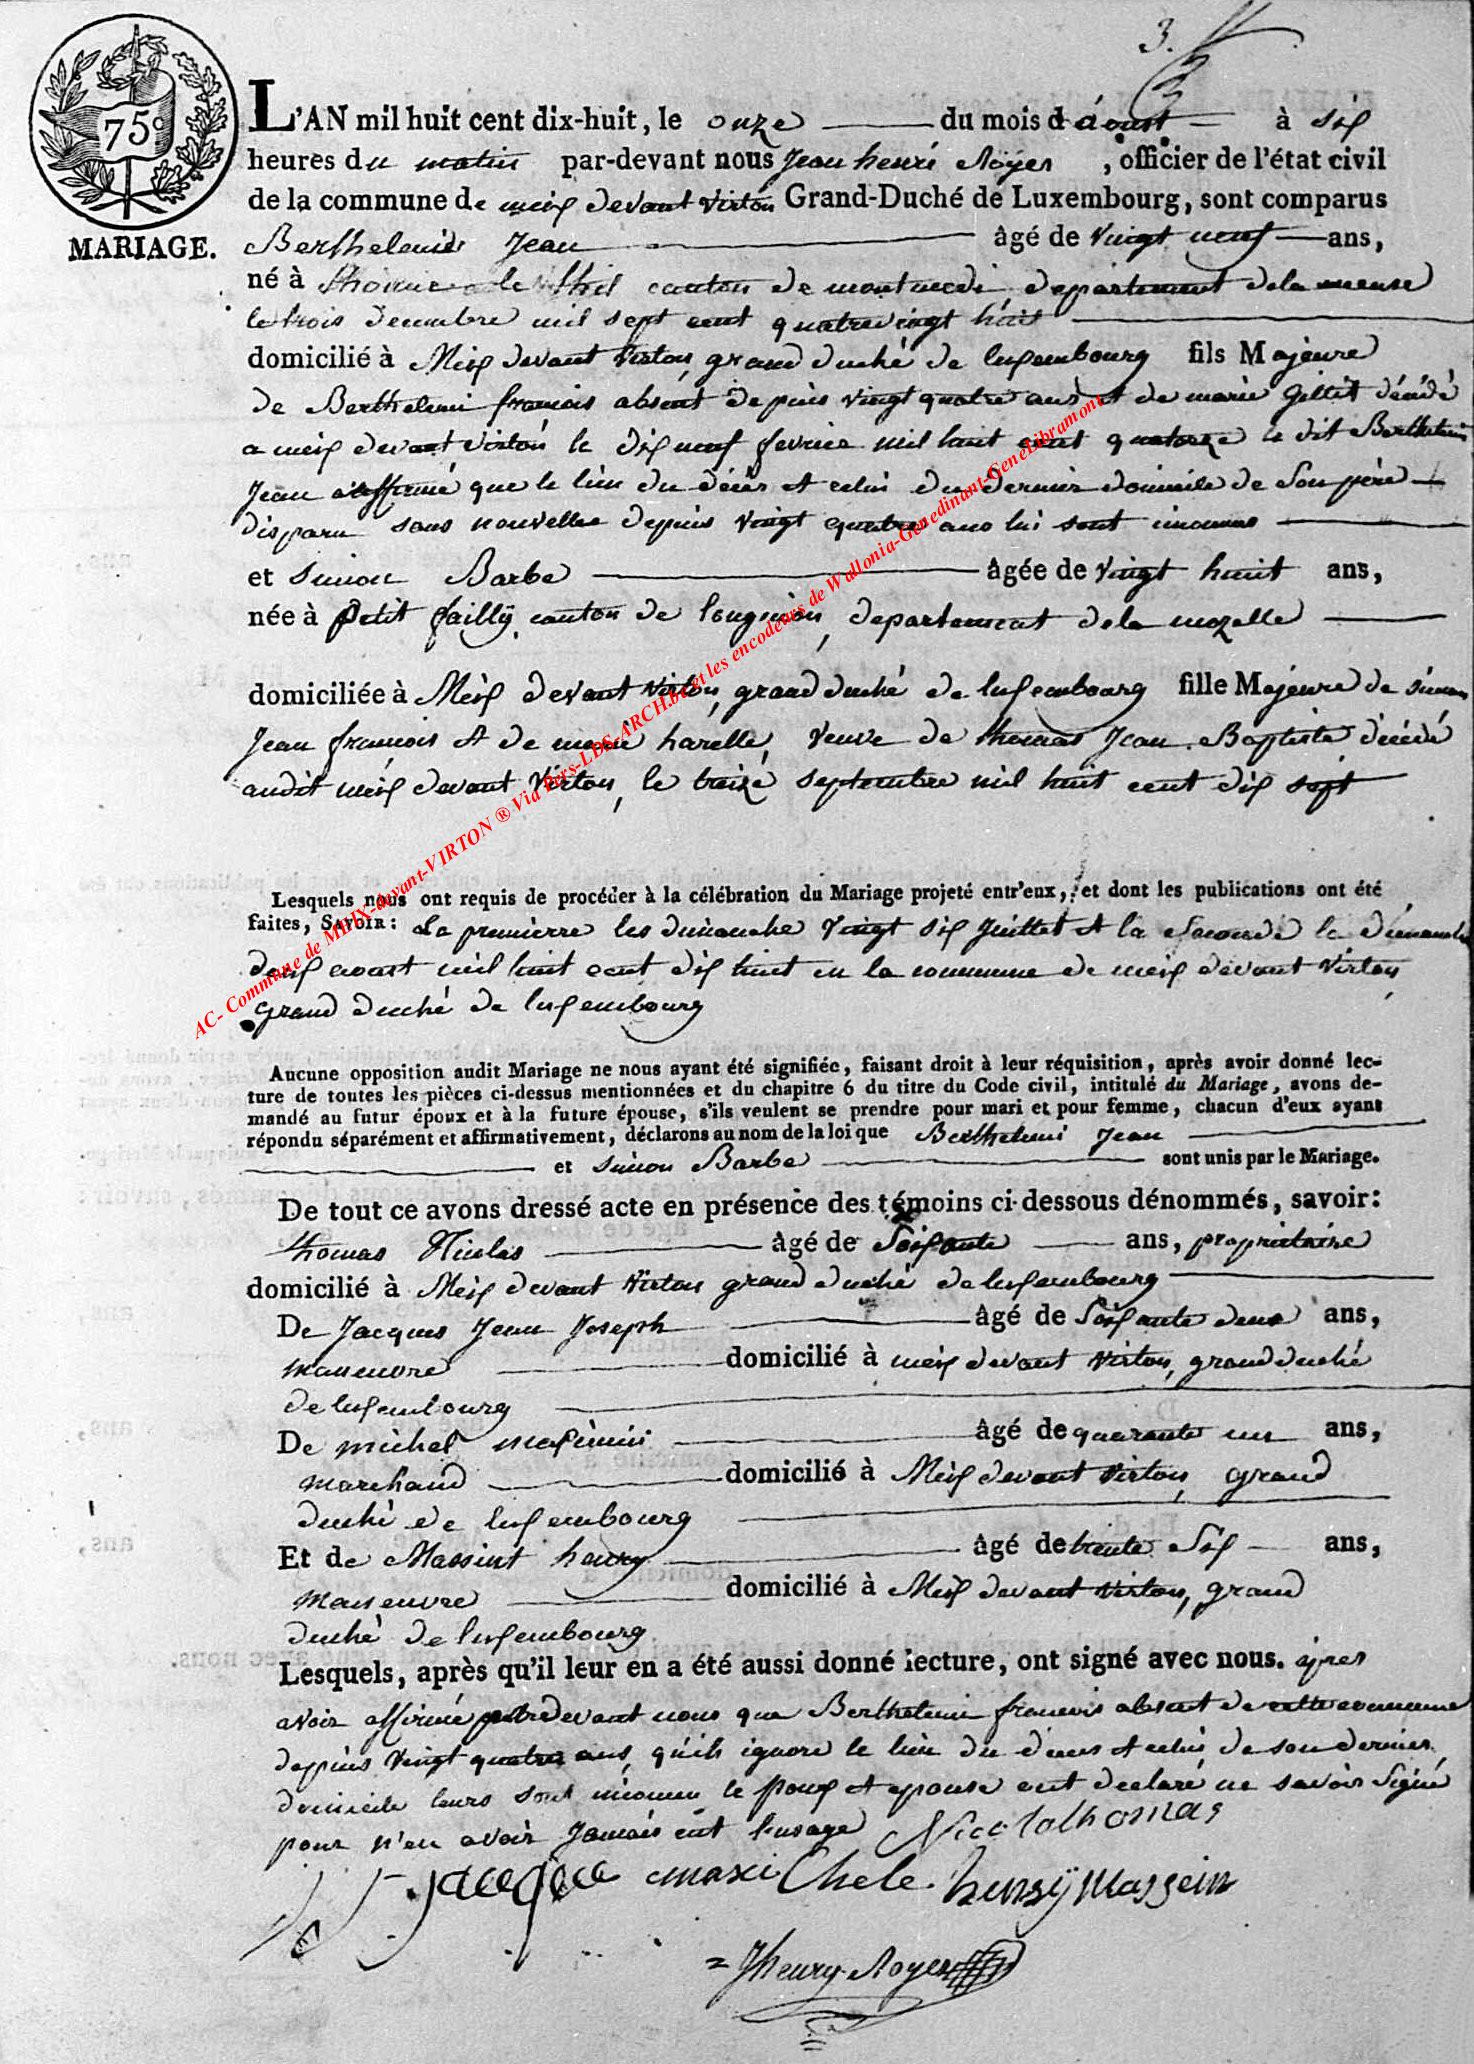 3.
75c
MARIAGE.
L'AN mil huit cent dix-huit, le onze du mois d'áoust à six
heures du matin par-devant nous Jean henri Royer, officier de l'état civil
de la commune de meix devant virton Grand-Duché de Luxembourg, sont comparus
Berthelemi Jean âgé de vingt neuf ans,
né à Thonne le thil canton de montmedi departement de la meuse
le trois decembre mil sept cent quatre vingt huit
domicilié à Meix devant virton, grand duché de luxembourg fils Majeure
de Berthelemi francois absent depuis vingt quatre ans et de marie gillet décédé
a meix devant virton le dix neuf fevrier mil huit cent quatorze le dit Berthelemi
Jean a affirmé que le lieu du décès et celui du dernier domicile de son père
disparu sans nouvelle depuis vingt quatre ans lui sont inconnus
et Simon Barbe âgée de vingt huit ans,
née à petit faillÿ, canton de longuion, departement de la mozelle
domiciliée à Meix devant virton, grand duché de luxembourg fille Majeure de simon
Jean francois et de marie harelle, veuve de thomas Jean Baptiste décédé
audit meix devant virton, le treize septembre mil huit cent dix sept
Lesquels nous ont requis de procéder à la célébration du Mariage projeté entr'eux, et dont les publications ont été
faites, SAVOIR: La premierre les dimanche vingt six Juillet et la seconde le dimanche
deux aoust mil huit cent dix huit en la commune de meix devant virton
grand duché de luxembourg
Aucune opposition audit Mariage ne nous ayant été signifiée, faisant droit à leur réquisition, après avoir donné lec-
ture de toutes les pièces ci-dessus mentionnées et du chapitre 6 du titre du Code civil, intitulé du Mariage, avons de-
mandé au futur époux et à la future épouse, s'ils veulent se prendre pour mari et pour femme, chacun d'eux ayant
répondu séparément et affirmativement, déclarons au nom de la loi que Berthelemi Jean
et simon Barbe sont unis par le Mariage.
De tout ce avons dressé acte en présence des témoins ci-dessous dénommés, savoir:
thomas Nicolas âgé de soixante ans, propriétaire
domicilié à Meix devant virton grand duché de luxembourg
De Jacques Jean Joseph âgé de soixante deux ans,
maneuvre domicilié à meix devant virton, grand duché
de luxembourg
De michel maximin âgé de quarante un ans,
marchand domicilié à Meix devant virton, grand
duché de luxembourg
Et de Massint henry âgé de trente six ans,
maneuvre domicilié à Meix devant virton, grand
duché de luxembourg
Lesquels, après qu'il leur en a été aussi donné lecture, ont signé avec nous. apres
avoir affirmé devant nous que Berthelemi francois absent de cette commune
depuis vingt quatre ans, qu'ils ignore le lieu du deces et celui de son dernier
domicile leurs sont inconnu le poux et epouse ont declaré ne savoir signé
pour n'en avoir Jamais eut l'usage Nicolathomas
J Jacque maxi Chele henrÿ massein
Jhenry Royer
AC- Commune de MEIX-devant-VIRTON ® Via Pers-LDS-ARCH.be et les encodeurs de Wallonia-Genedinant-GeneLibramont